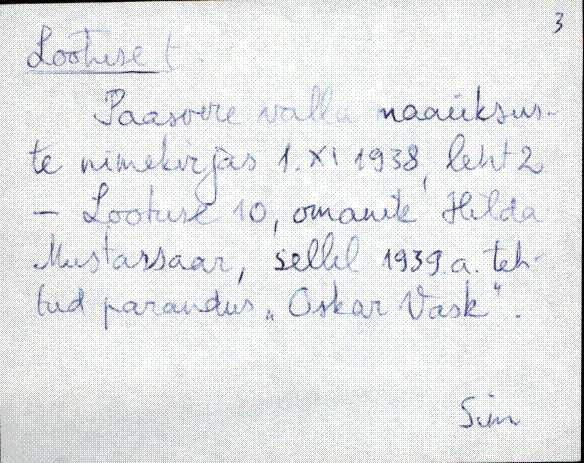 3
Lootuse t.
Paasvere valla maaüksus-
te nimekirjas 1. XI 1938, leht 2
– Lootuse 10, omanik Hilda
Mustassaar, sellel 1939 a. teh-
tud parandus „Oskar Vask".
Sim